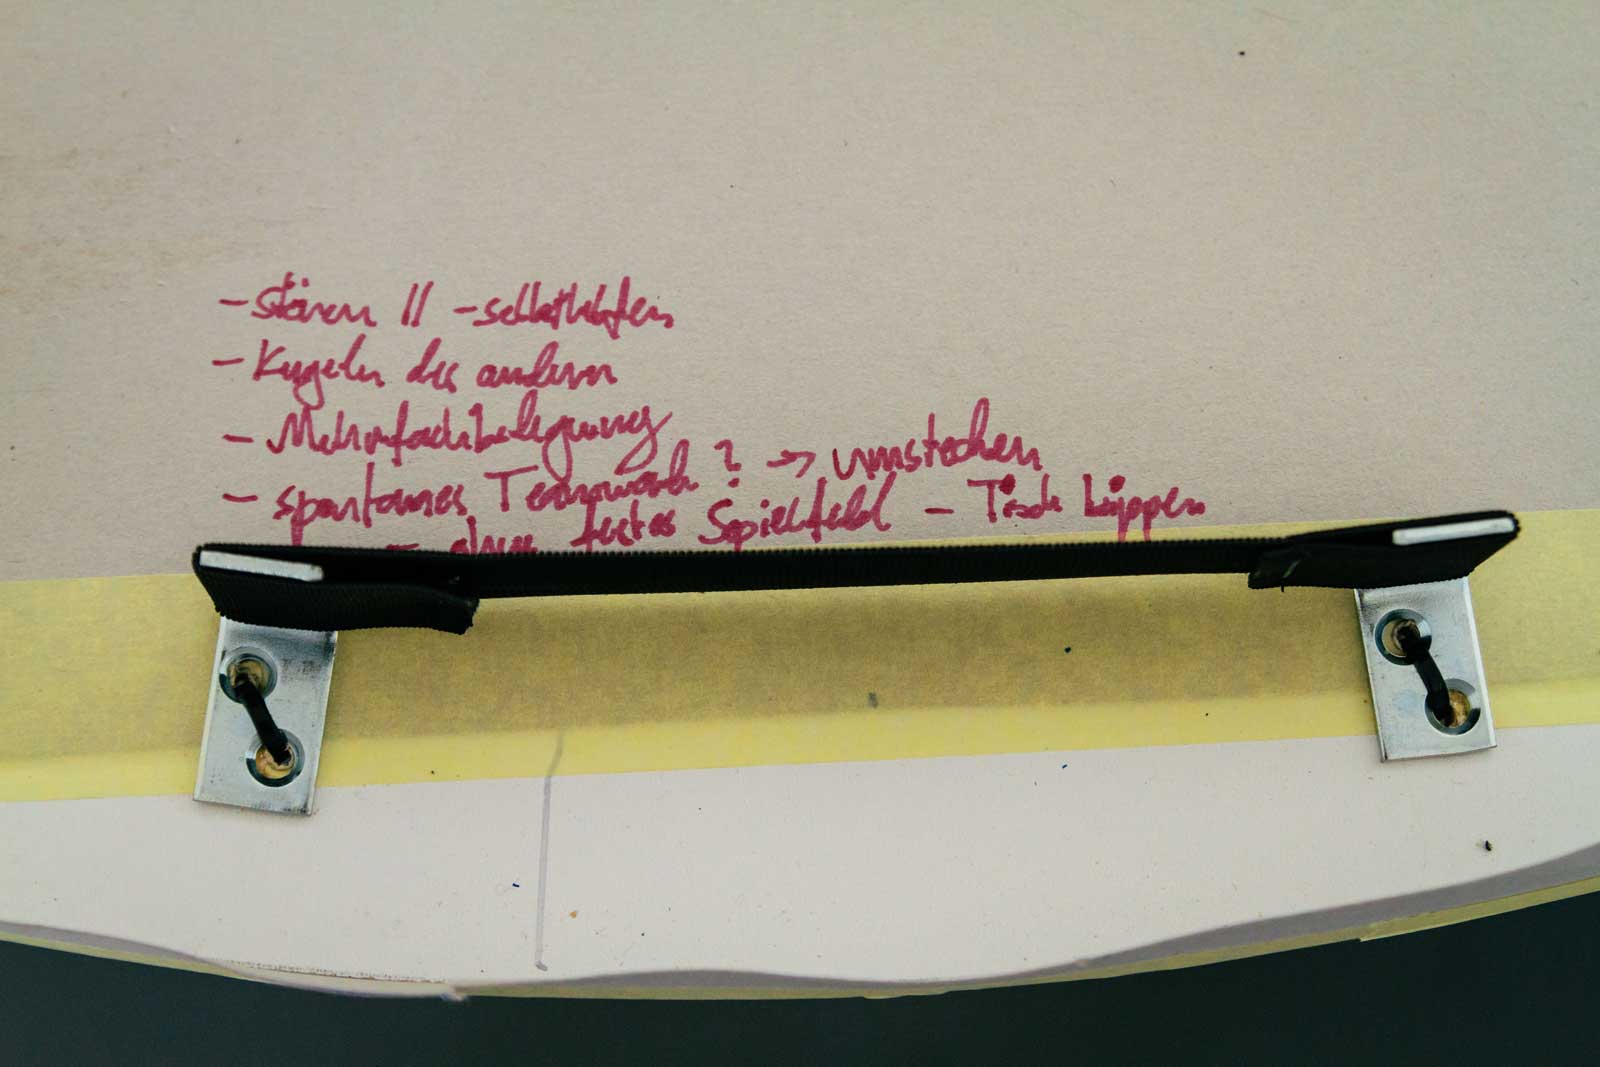 - stören // - selbsthelfen
- Kugeln des anderen
- Mehrfachbelegung
- spontanes Teamwork ? → umstecken
- ohne festes Spielfeld - Tisch kippen